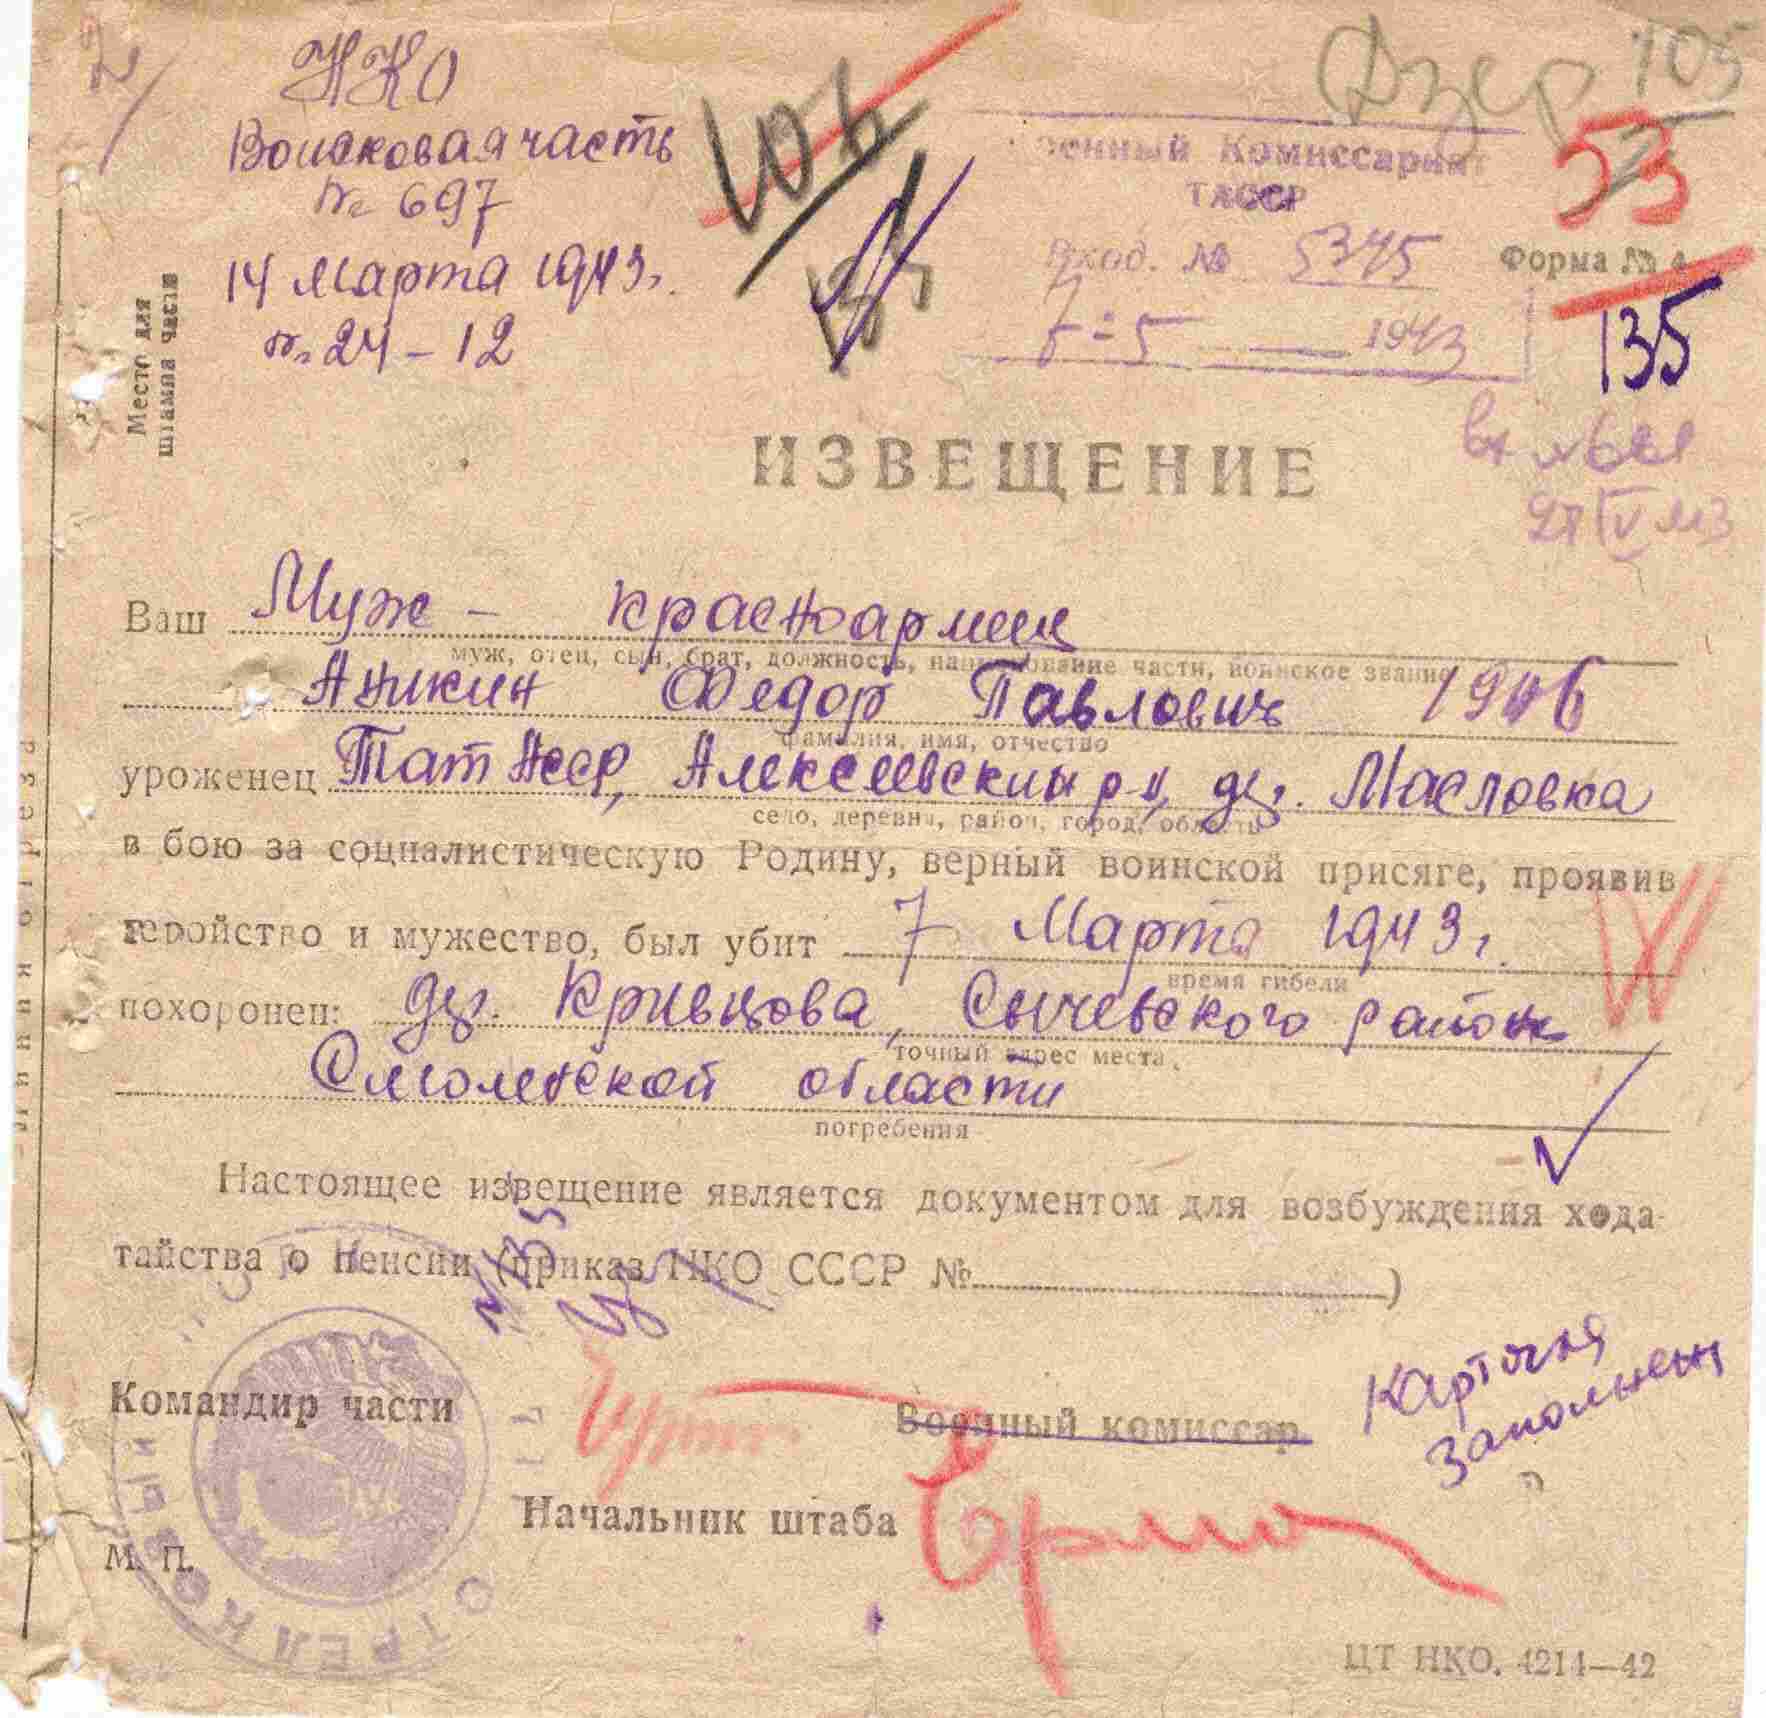 НКО
Воисковая часть
№ 697
14 Марта 1943г.
№ 24-12
Место для
штампа части
Дзер 105
2
53
Военный Комиссариат
ТАССР
Вход. № 5345
5 1943
Форма № 4
135
ИЗВЕЩЕНИЕ
Ваш Муж - красноармеец
муж, отец, сын, брат, должность, наименование части, воинское звание
Аникин Федор Павлович 1906
фамилия, имя, отчество
уроженец Тат АССР, Алексеевский р-н, дер. Масловка
село, деревня, район, город, область
в бою за социалистическую Родину, верный воинской присяге, проявив
геройство и мужество, был убит 7 Марта 1943г.
время гибели
похоронен: дер. Кривцова, Сычевского район
точный адрес места
Смоленской области
погребения
Настоящее извещение является документом для возбуждения хода-
тайства о пенсии (приказ НКО СССР № )
Линия отреза
Командир части
Военный комиссар
Карточка
заполнена
Начальник штаба
М. П.
СТРЕЛКОВЫЙ
ЦТ НКО. 4214—42